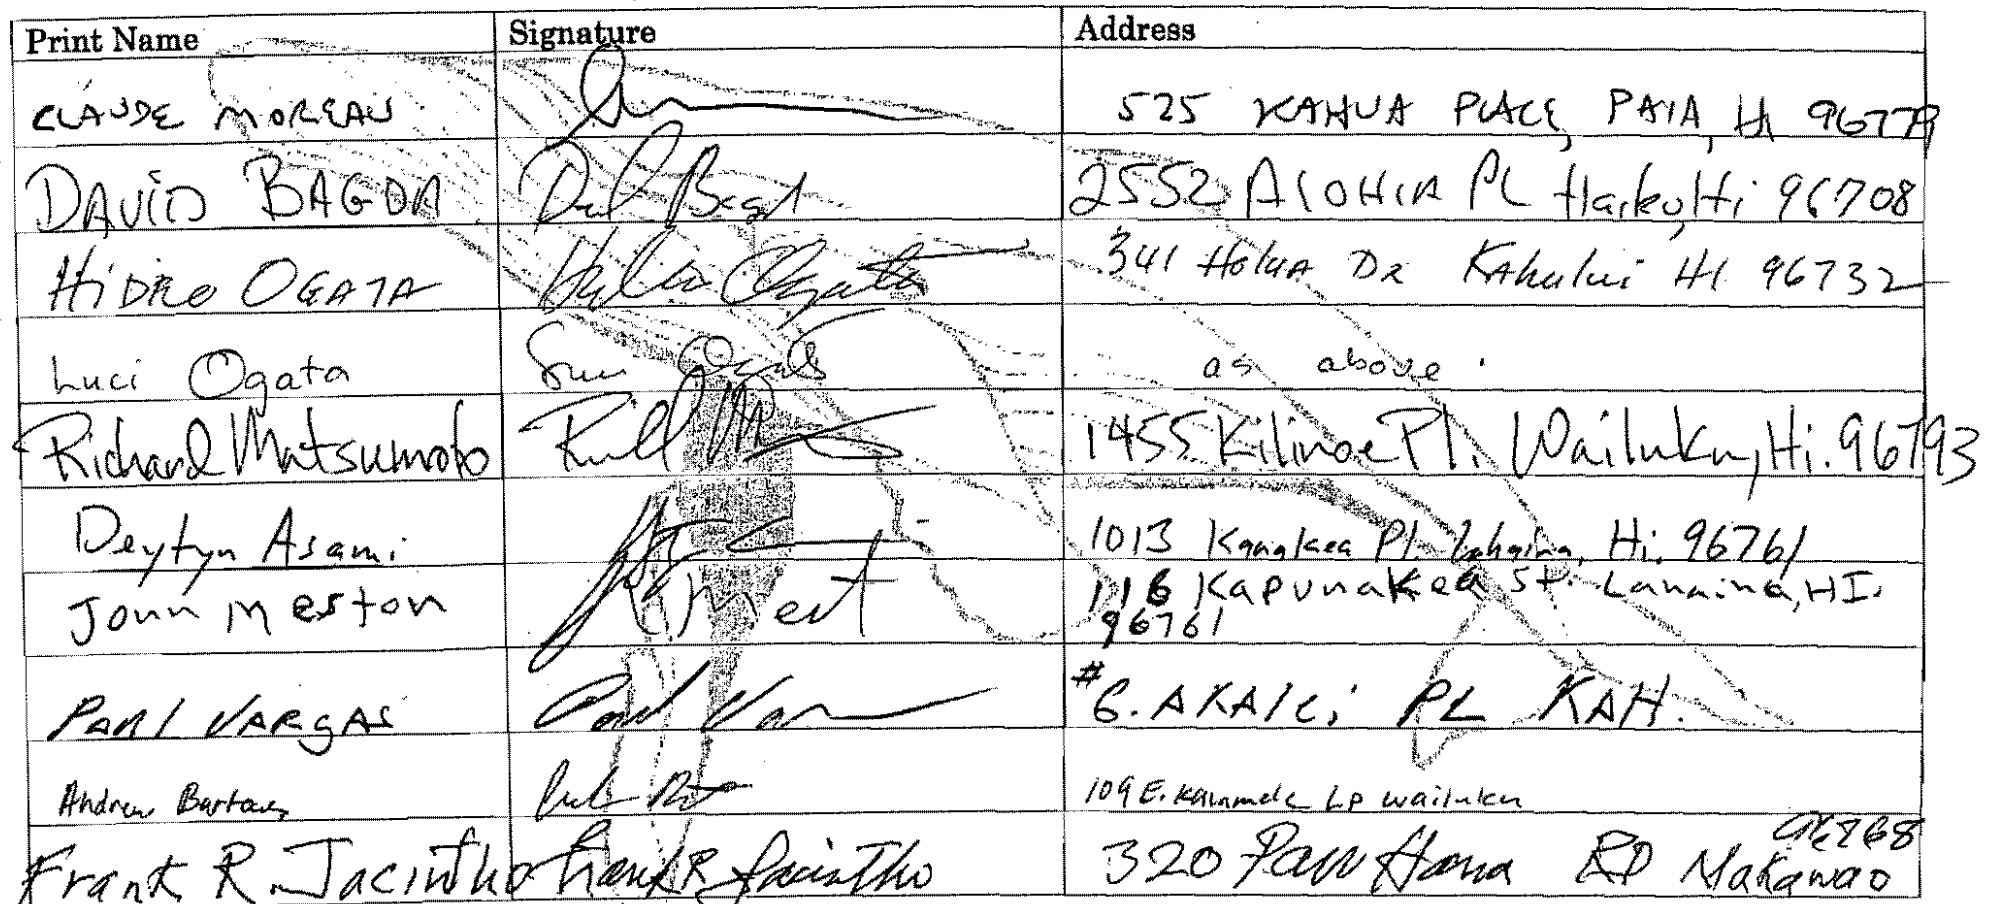 Print Name Signature Address
CLAUDE MOREAU 525 KAHUA PLACE, PAIA, HI 96779
DAVID BAGOA 2552 AlOHIA PL Haiku, Hi 96708
HiDEO OGATA Hideo Ogata 341 HolUA DR KAhului HI 96732
Luci Ogata Ogata as above.
Richard Matsumoto 1455 Kilinoe Pl. Wailuku, Hi. 96793
Deytyn Asami 1013 Pl. Lahaina, Hi. 96761
John Meston 116 Kapunakea St. Lahaina, HI.
96761
PAUl VARgAS Paul #6. AKAlei PL KAH.
Andrew 109 E. Lp wailuku
Frank R. Jacintho Frank R. Jacintho 320 Pauu Hana RD Makawao
96768